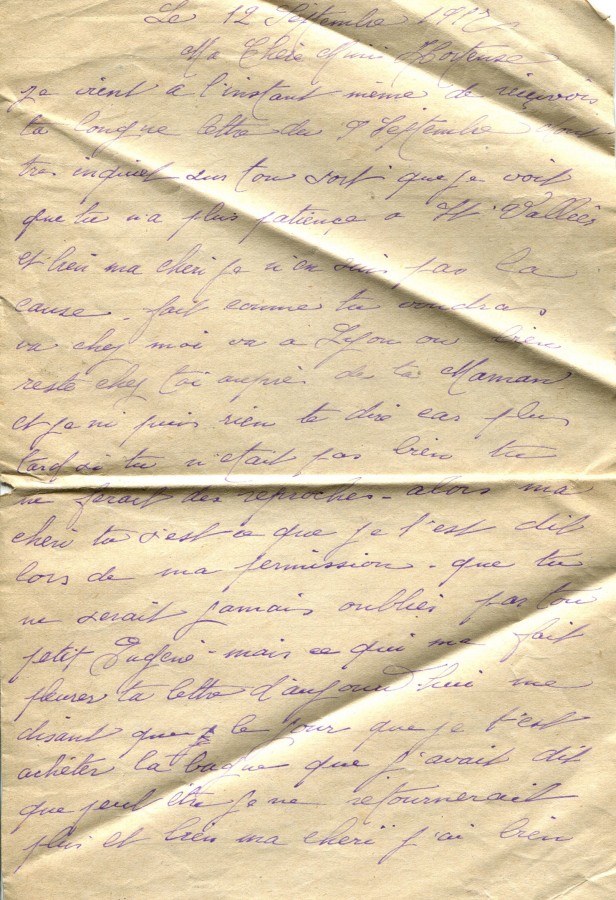 Le 12 Septembre 1917
Ma Chère Mimi Hortense
je vient a l'instant même de reçevoir
ta longue lettre du 7 Septembre dont
tres inquiet sur ton sort que je voit
que tu n'a plus patience a St Vallier
et bien ma cheri je n'en suis pas la
cause. fait comme tu voudras
va chez moi va a Lyon ou bien
reste chez toi auprès de ta Maman
et je ni puis rien te dire cas plus
tard si tu n'etait pas bien tu
me ferait des reproches - alors ma
cheri tu s'est ce que je t'est dit
lors de ma permission - que tu
ne serait jamais oubliés par ton
petit Eugène - mais ce qui me fait
pleurer ta lettre d'aujourd'hui me
disant que le jour que je t'est
achéter la bague que j'avait dit
que peut etre je ne retournerait
plus et bien ma cheri j'ai bien